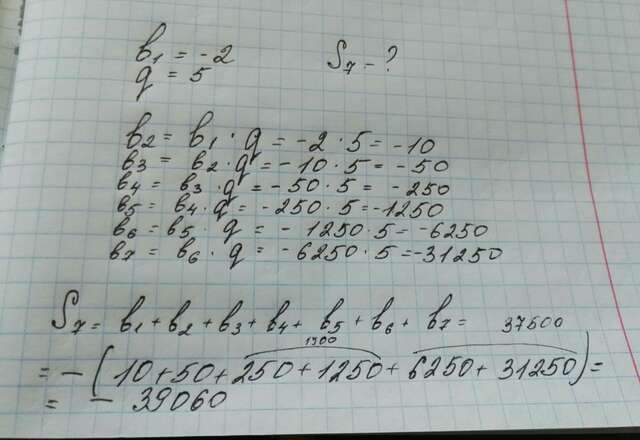 b₁ = -2 S₇ - ?
q = 5
b₂ = b₁ · q = -2 · 5 = -10
b₃ = b₂ · q = -10 · 5 = -50
b₄ = b₃ · q = -50 · 5 = -250
b₅ = b₄ · q = -250 · 5 = -1250
b₆ = b₅ · q = -1250 · 5 = -6250
b₇ = b₆ · q = -6250 · 5 = -31250
S₇ = b₁ + b₂ + b₃ + b₄ + b₅ + b₆ + b₇ = 37500
1500
= - (10 + 50 + 250 + 1250 + 6250 + 31250) =
= - 39060